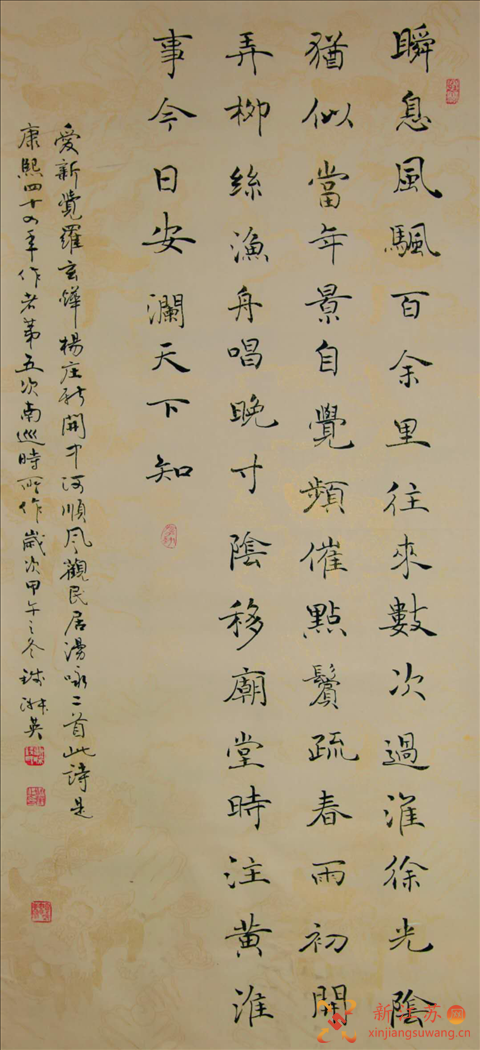 瞬息風颿百余里往來數次過淮徐光陰
猶似當年景自覺頻催點鬢疏春雨初開
弄柳絲漁舟唱晚寸陰移廟堂時注黃淮
事今日安瀾天下知
愛新覺羅玄燁楊庄新開中河順風觀民居漫咏二首此詩是
康熙四十四年作者第五次南巡時所作歲次甲午之冬
新江苏
xinjiangsuwang.cn